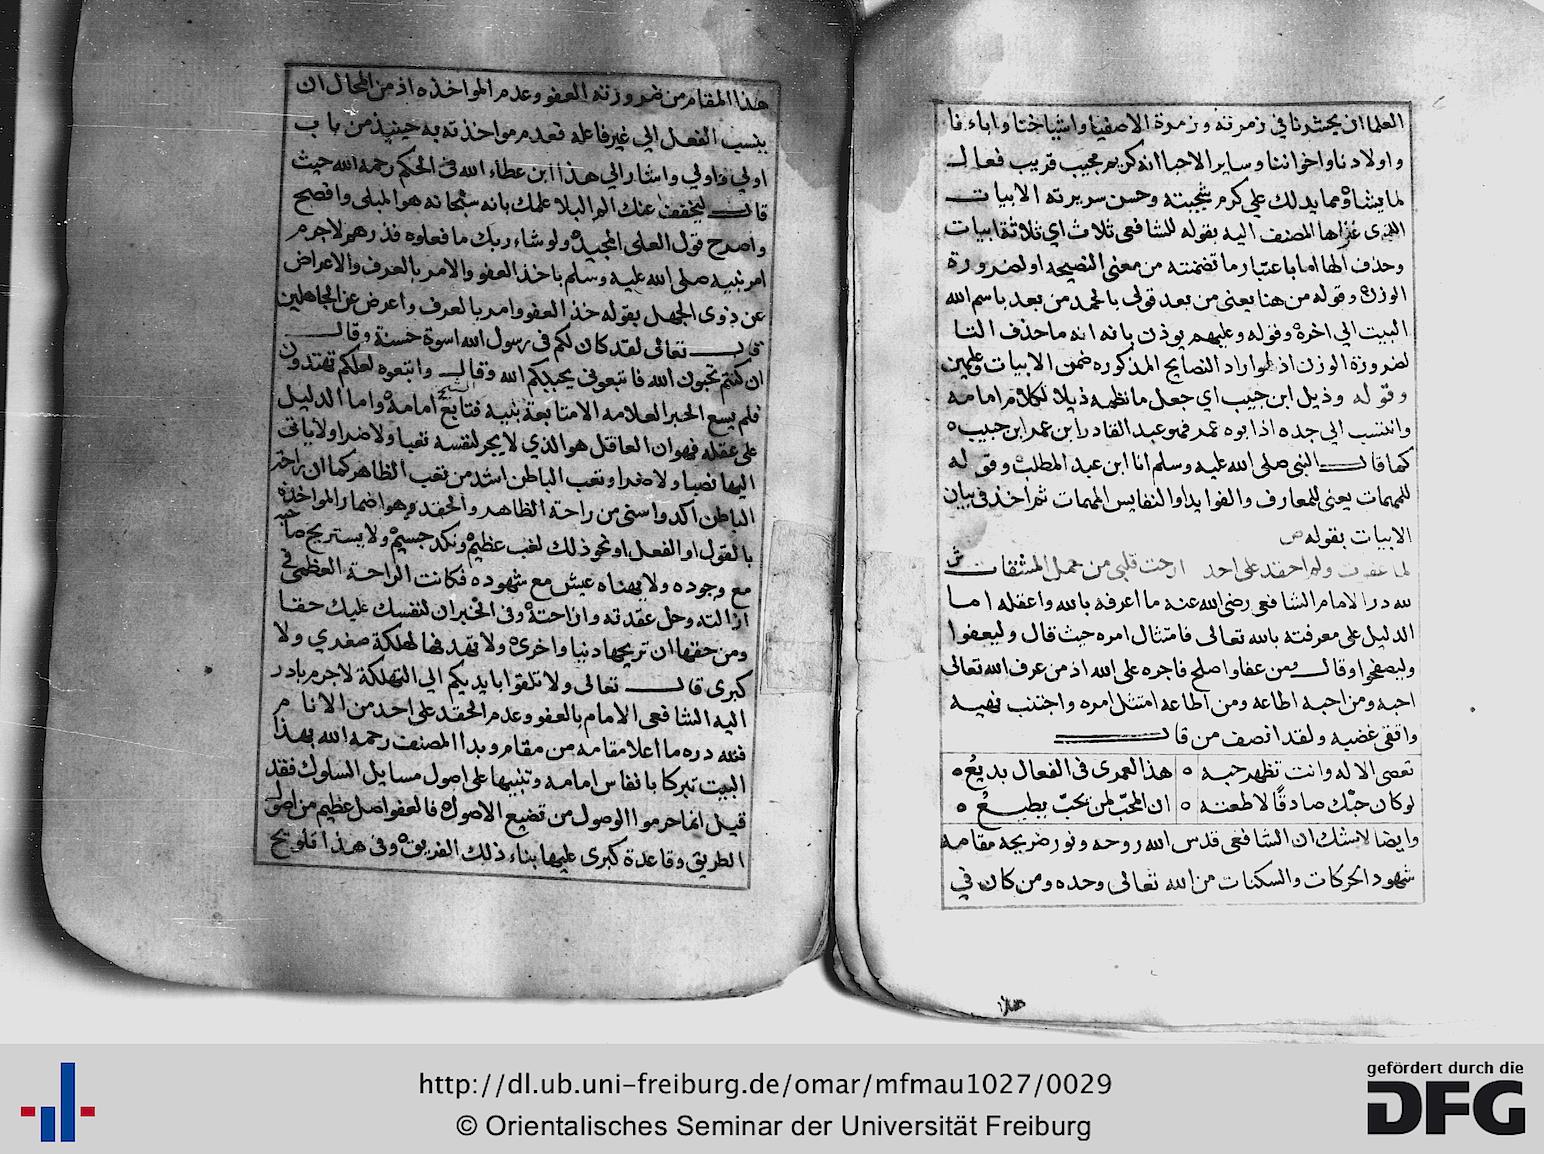 العلماان يحشرنا في زمرته وزمرة الاصفيا واشياخنا واباءنا
واولادنا واخواننا وساير الاحبا انه كريم مجيب قريب فعال
لما يشاؤ مما يدلك علي كرم شجيته وحسن سريرته الابيات
التي عزاها المصنف اليه بقوله للشافعي ثلاث اي ثلاثة ابيات
وحذف الها اما باعتبار ما تضمنته من معني النصيحه او لضرورة
الوزن وقوله من هنا يعني من بعد قولي بالحمد من بعد باسم الله
البيت الي اخره وقوله وعليهم يوذن بانه انه ما حذف التا
لضرورة الوزن اذ لو اراد النصايح المذكوره ضمن الابيات
وقوله وذيل ابن حبيب اي جعل ما نظمه ذيلا لكلام امامه
وانتسب الي جده اذ ابوه عمد فهو عبد القادر ابن عمر ابن حبيب
كما قال النبي صلي الله عليه وسلم انا ابن عبد المطلب وقوله
للمهمات يعني للمعارف والفوايد او النفايس المهمات ثم اخذ في بيان
الابيات بقوله ص
لما عفوت ولم احقد على احد ارحت قلبي من حمل المشقات ش
لله در الامام الشافعي رضي الله عنه ما اعرفه بالله واعقله اما
الدليل علي معرفته بالله تعالى فامتثال امره حيث قال وليعفوا
وليصفحوا وقال ومن عفا واصلح فاجره على الله اذ من عرف الله تعالى
احبه ومن احبه اطاعه ومن اطاعه امتثل امره واجتنب نهيه
واتقى غضبه ولقد انصف من قال
تعصى الاله وانت تظهر حبه ه هذا لعمرى في الفعال بديع ه
لو كان حبك صادقًا لاطعته ه ان المحبّ لمن يحبّ يطيع ه
وايضا لاشك ان الشافعي قدس الله روحه ونور ضريحه مقامه
شهود الحركات والسكنات من الله تعالى وحده ومن كان في
هذا المقام من ضرورته العفو وعدم المواخذه اذ من المحال ان
ينسب الفعل الي غير فاعله فعدم مواخذته به حينيذ من باب
اولي واولي واشار الي هذا ابن عطاء الله في الحكم رحمه الله حيث
قال ليخفف عنك الم البلا علمك بانه سبحانه هو المبلى وافصح
واصرح قول العلي المجيد ولو شاء ربك ما فعلوه فذرهم لاجرم
امر نبيه صلى الله عليه وسلم باخذ العفو والامر بالعرف والاعراض
عن ذوى الجهل بقوله خذ العفو وامر بالعرف واعرض عن الجاهلين
قال تعالى لقد كان لكم في رسول الله اسوة حسنة وقال
ان كنتم تحبون الله فاتبعوني يحببكم الله وقال واتبعوه لعلكم تهتدون
فلم يسع الحبر العلامه الا متابعة نبيه فتابع الشيخ امامه واما الدليل
على عقله فهو ان العاقل هو الذي لا يجر لنفسه تعبا ولا ضرا ولا ياتي
اليها نصبا ولا ضرا وتعب الباطن اشد من تعب الظاهر كما ان راحة
الباطن اكد واسنى من راحة الظاهر والحقد وهو اضمار المواخذة
بالقول او الفعل او نحو ذلك تعب عظيم ونكد جسيم ولا يستريح صاحبه
مع وجوده ولا يهناه عيش مع شهوده فكانت الراحة العظمى في
ازالته وحل عقدته وازاحته وفي الخبر ان لنفسك عليك حقا
ومن حقها ان تريحها دنيا واخرى ولا تهدفها لهلكة صغري ولا
كبرى قال تعالى ولا تلقوا بايديكم الي التهلكة لاجرم بادر
اليه الشافعي الامام بالعفو وعدم الحقد على احد من الانام
فلله دره ما اعلا مقامه من مقام وبدا المصنف رحمه الله بهذا
البيت تبركا بانفاس امامه وتنبيها على اصول مسايل السلوك فقد
قيل انما حرموا الوصول من تضيع الاصول فالعفو اصل عظيم من اصول
الطريق وقاعدة كبرى عليها بناء ذلك الفريق وفي هذا تلويح
http://dl.ub.uni-freiburg.de/omar/mfmau1027/0029
© Orientalisches Seminar der Universität Freiburg
gefördert durch die
DFG